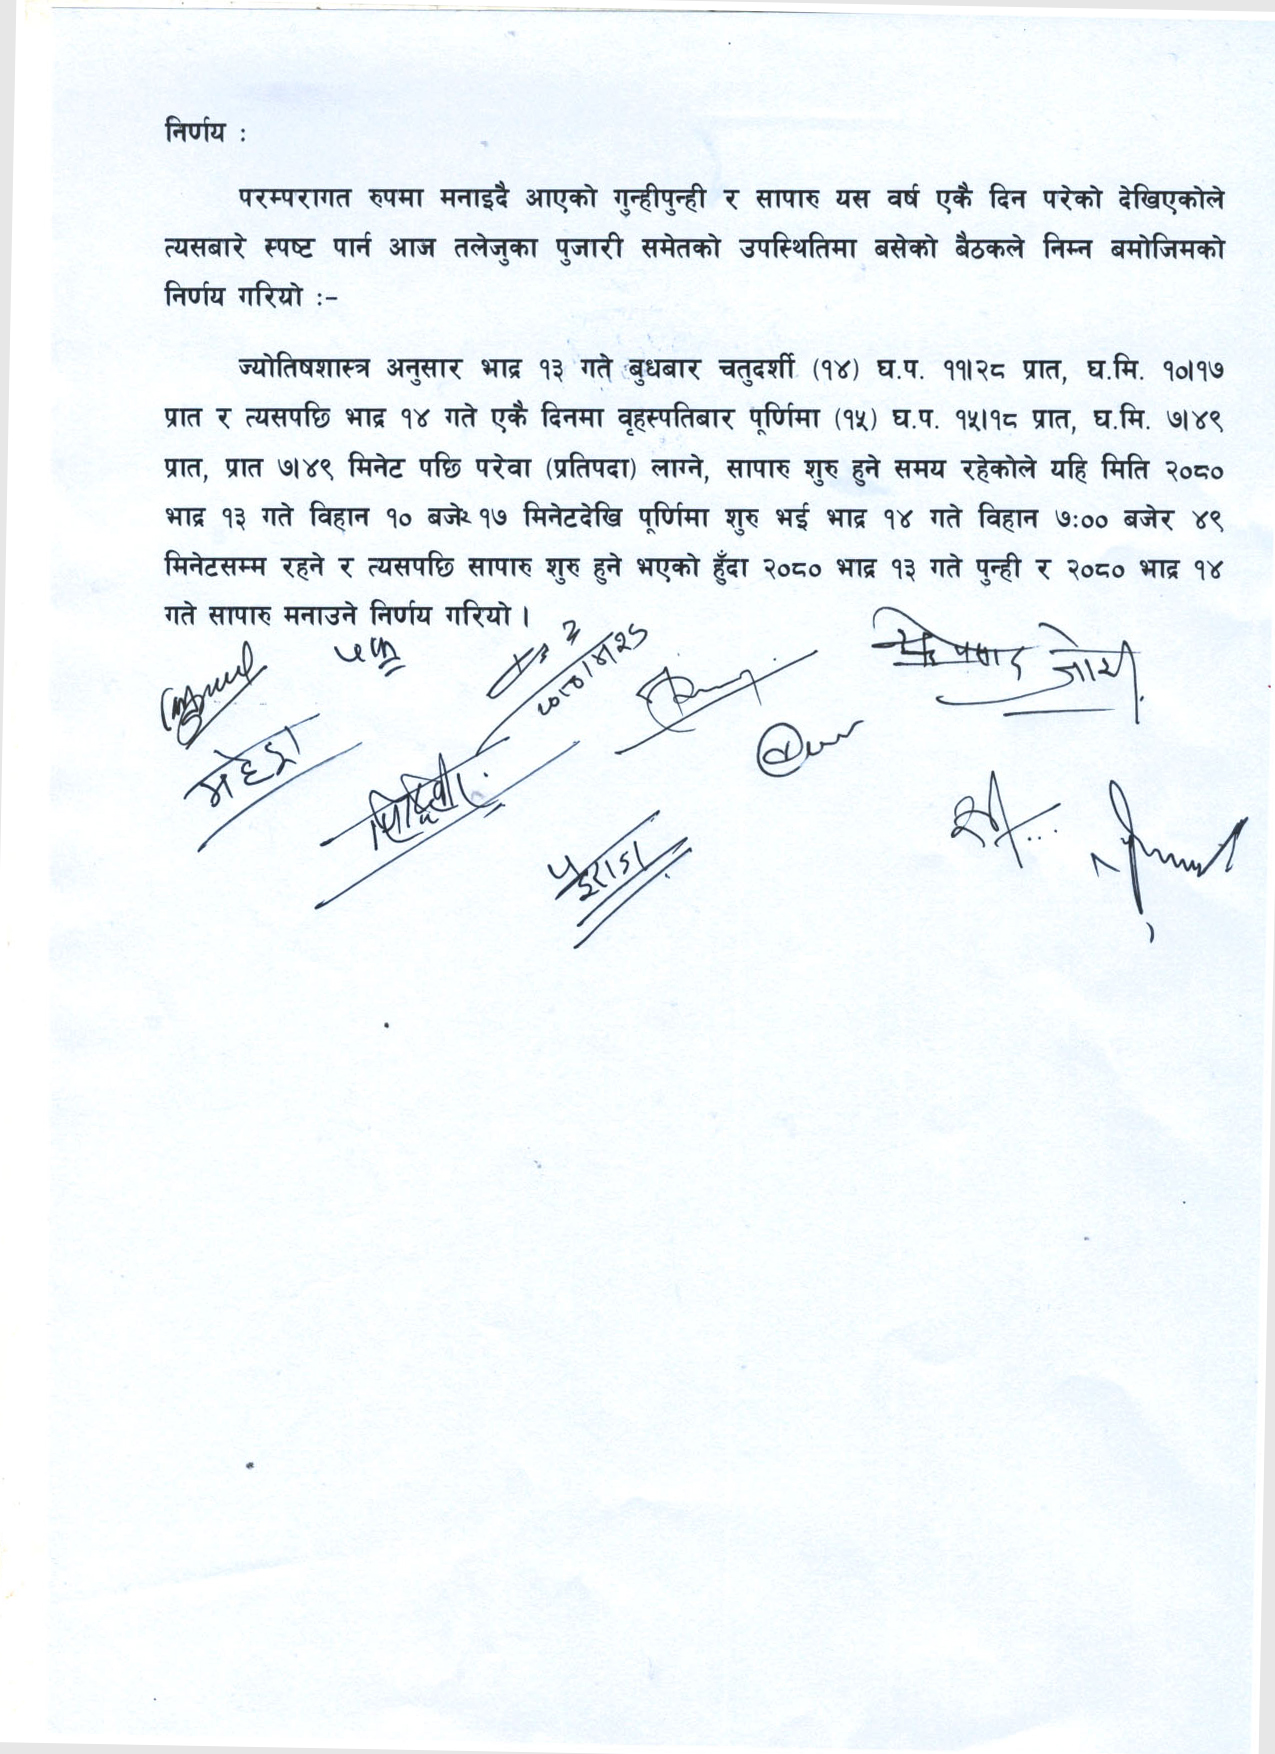 निर्णय :
परम्परागत रुपमा मनाइदै आएको गुन्हीपुन्ही र सापारु यस वर्ष एकै दिन परेको देखिएकोले
त्यसबारे स्पष्ट पार्न आज तलेजुका पुजारी समेतको उपस्थितिमा बसेको बैठकले निम्न बमोजिमको
निर्णय गरियो :-
ज्योतिषशास्त्र अनुसार भाद्र १३ गते बुधबार चतुदर्शी (१४) घ.प. ११।२८ प्रात, घ.मि. १०।१७
प्रात र त्यसपछि भाद्र १४ गते एकै दिनमा वृहस्पतिबार पूर्णिमा (१५) घ.प. १५।१८ प्रात, घ.मि. ७।४९
प्रात, प्रात ७।४९ मिनेट पछि परेवा (प्रतिपदा) लाग्ने, सापारु शुरु हुने समय रहेकोले यहि मिति २०८०
भाद्र १३ गते विहान १० बजेर १७ मिनेटदेखि पूर्णिमा शुरु भई भाद्र १४ गते विहान ७:०० बजेर ४९
मिनेटसम्म रहने र त्यसपछि सापारु शुरु हुने भएको हुँदा २०८० भाद्र १३ गते पुन्ही र २०८० भाद्र १४
गते सापारु मनाउने निर्णय गरियो ।
प्रसाद जोशी
महेश